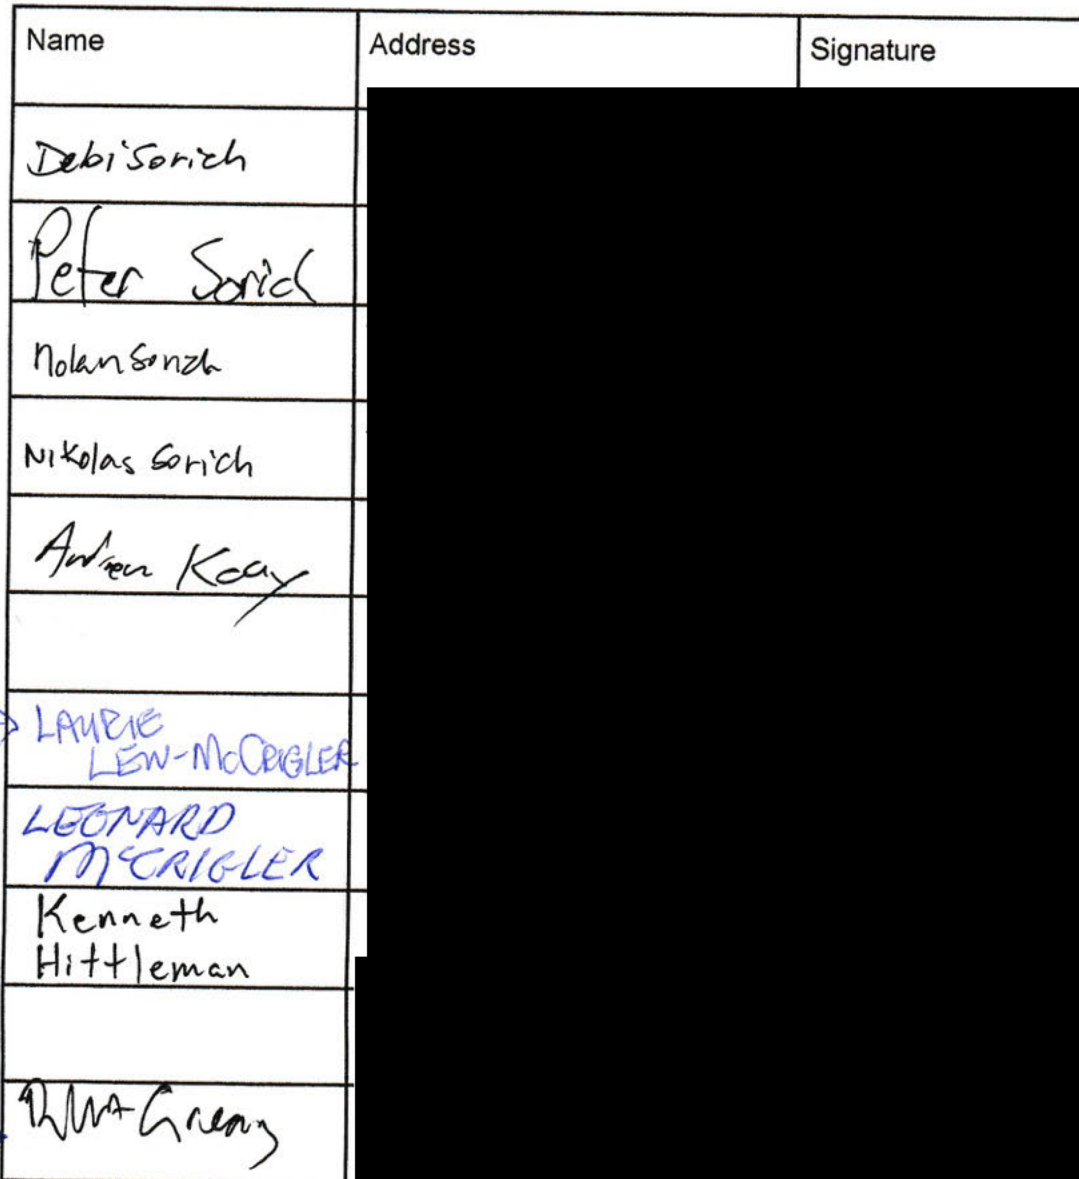 Name Address Signature
Debi Sorich
Peter Sorich
Nolan Sorich
Nikolas Sorich
Andrew Koay
LAURIE
LEW-McCRIGLER
LEONARD
McCRIGLER
Kenneth
Hittleman